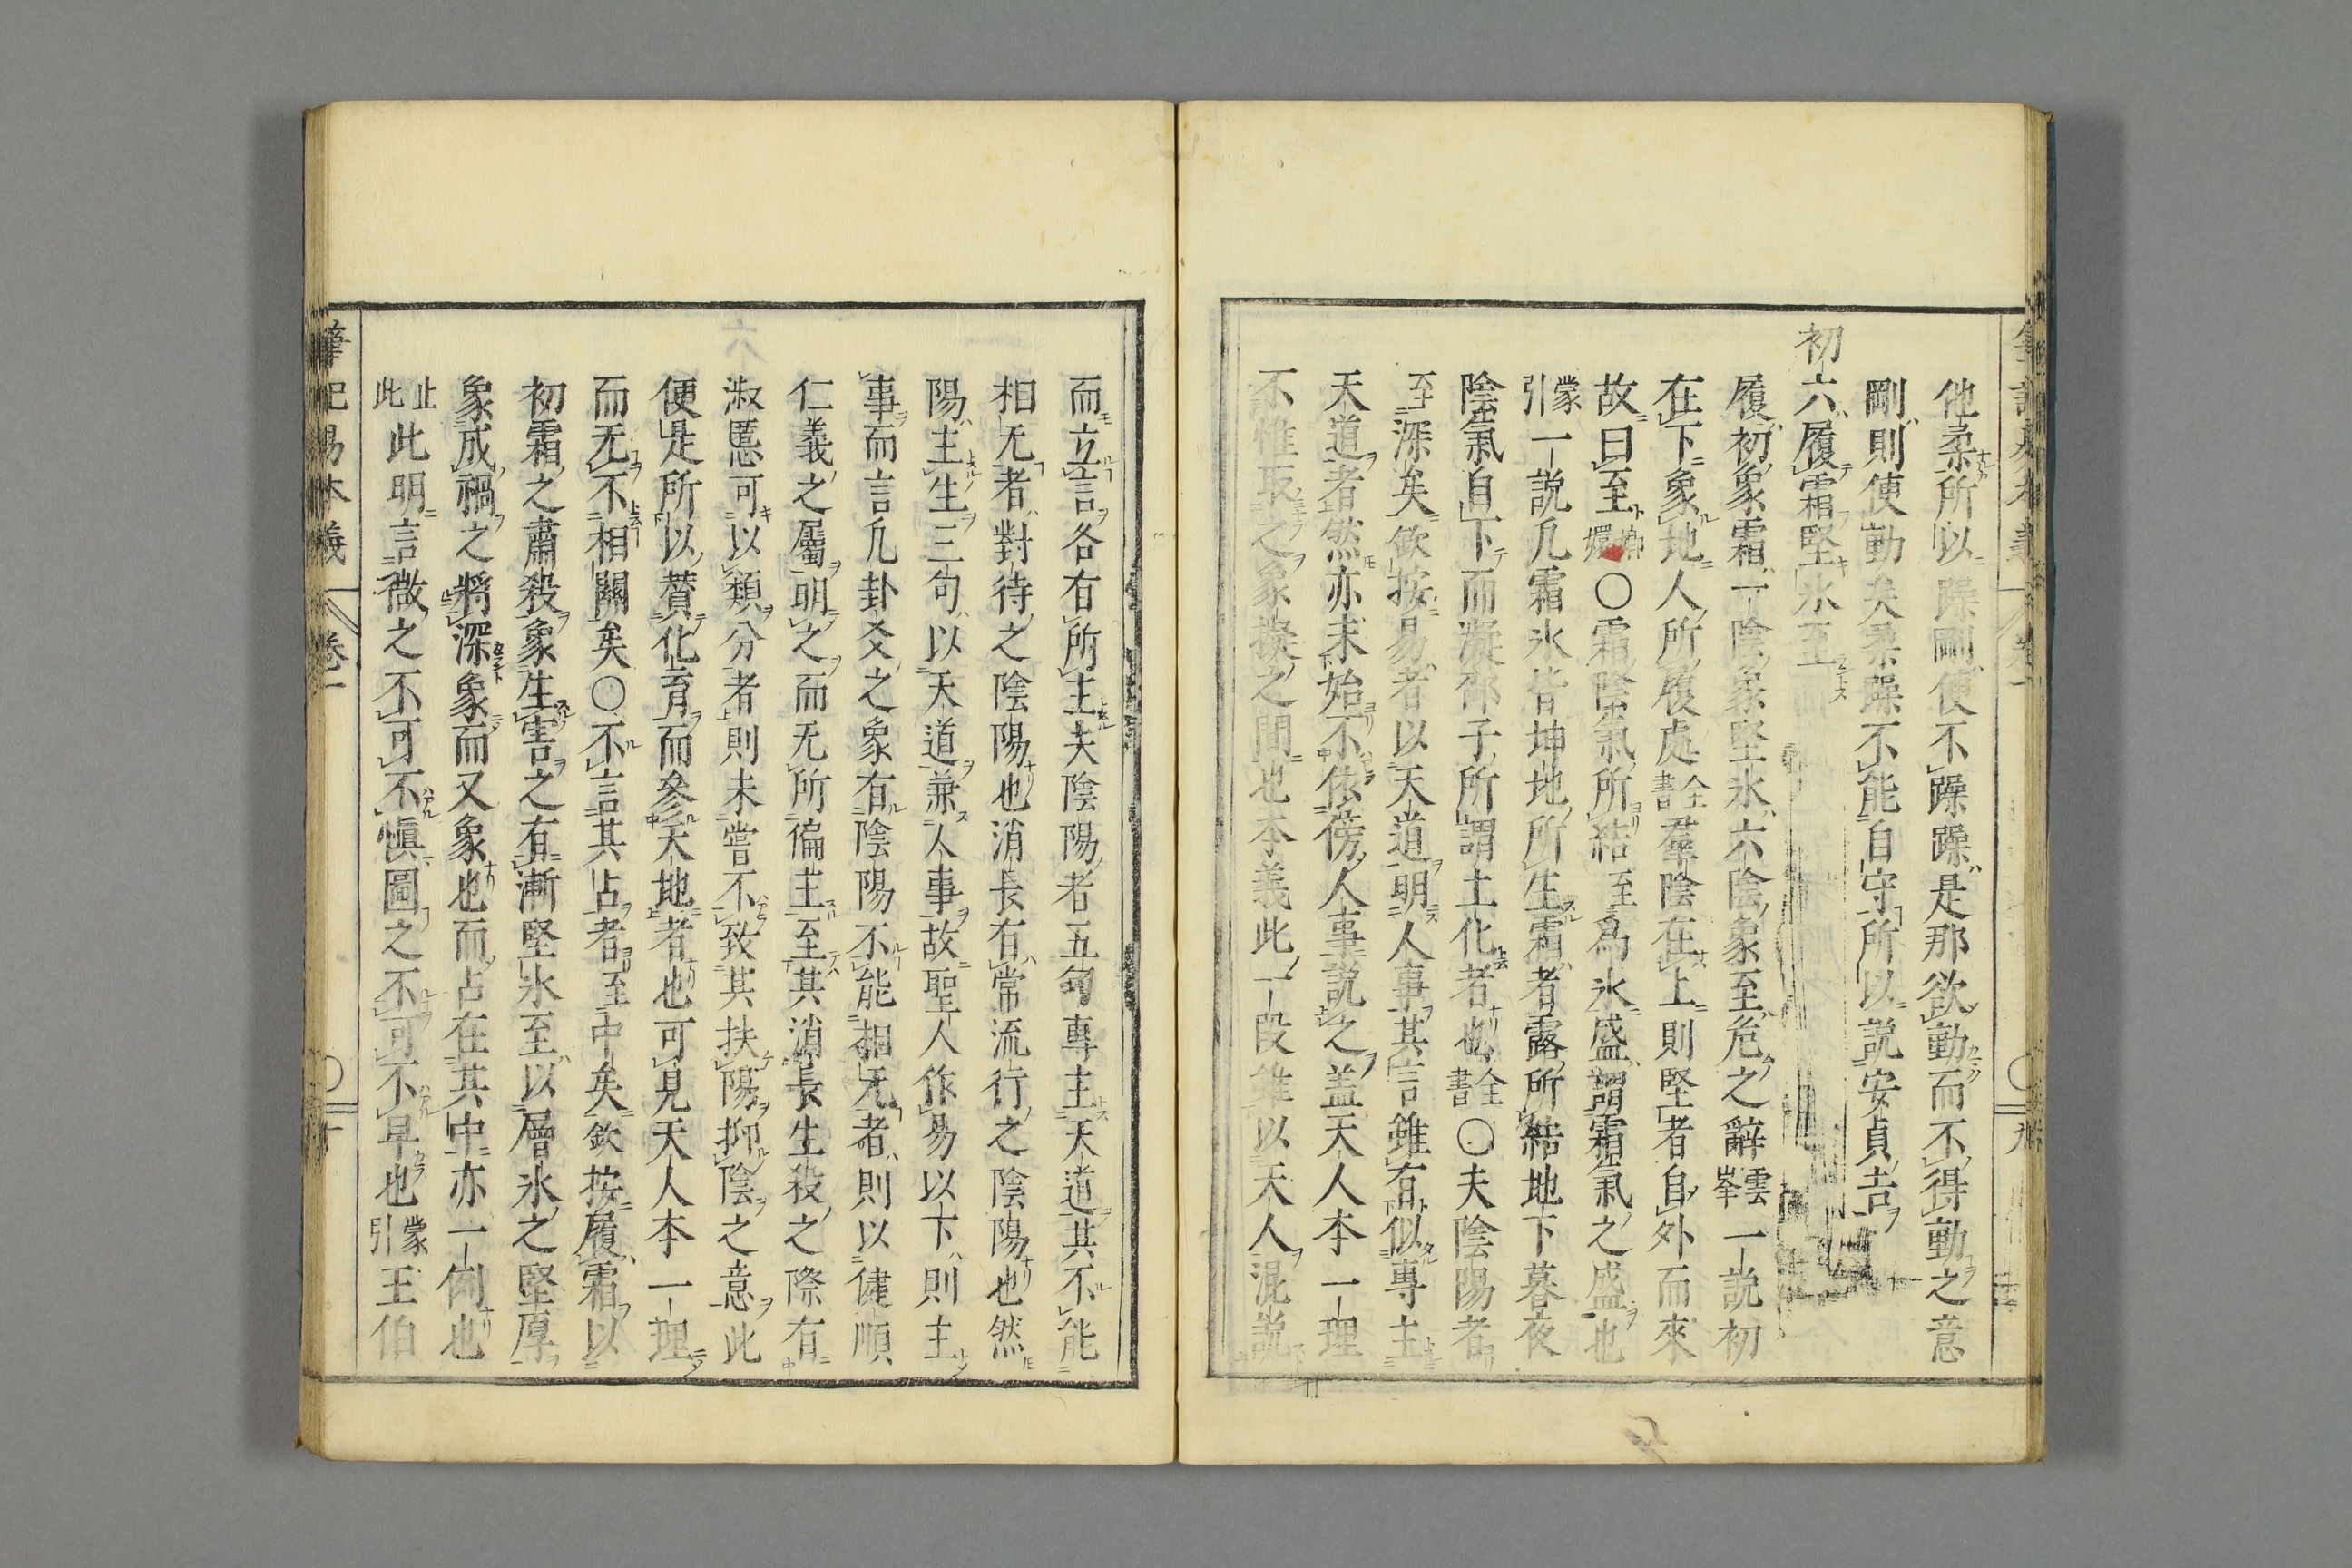 他柔所以躁剛便不躁躁是那欲動而不得動之意
剛則便動矣柔躁不能自守所以説安貞吉
初六履霜堅氷至
履初象霜一陰象堅氷六陰象至危之辭雲峯一説初
在下象地人所履處全書羣陰在上則堅者自外而來
故曰至 〇霜陰氣所結至爲氷盛謂霜氣之盛也
蒙引一説凡霜氷皆坤地所生霜者露所結地下暮夜
陰氣自下而凝邵子所謂土化者也全書〇夫陰陽者
至深矣欽按易者以天道明人事其言雖右似專主
天道者然亦未始不依傍人事説之蓋天人本一理
不惟取之象擬之間也本義此一段雖以天人混説
而立言各右所主夫陰陽者五句專主天道其不能
相无者對待之陰陽也消長有常流行之陰陽也然
陽主生三句以天道兼人事故聖人作易以下則主
事而言凡卦爻之象有陰陽不能相无者則以健順
仁義之屬明之而无所偏主至其消長生殺之際有
淑慝可以類分者則未嘗不致其扶陽抑陰之意此
便是所以賛化育而參天地者也可見天人本一理
而无不相關矣〇不言其占者至中矣欽按履霜以
初霜之肅殺象生害之有漸堅氷至以層氷之堅厚
象成禍之將深象而又象也而占在其中亦一例也
止此此明言微之不可不愼圖之不可不早也蒙引王伯
筆記易本義 卷一 〇 十